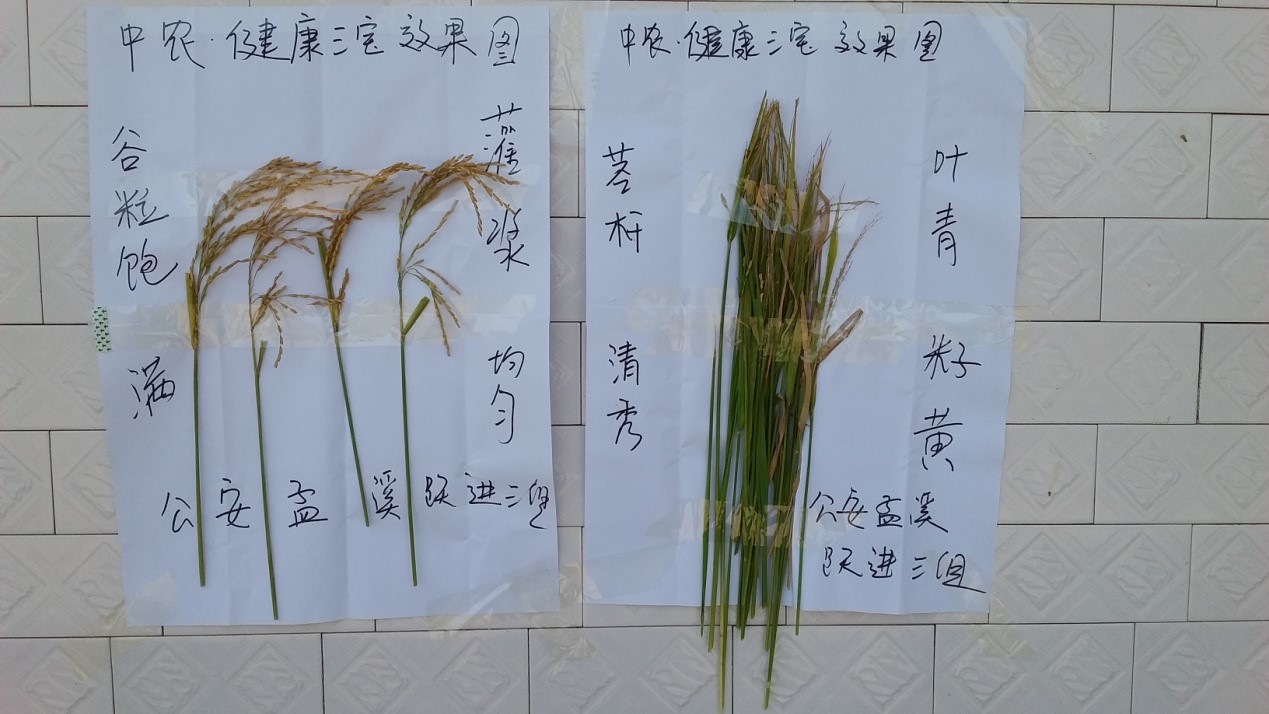 中农·健康三宝效果图
谷粒饱满
灌浆均匀
公安孟溪跃进三组
中农·健康三宝效果图
茎杆清秀
叶青籽黄
公安孟溪
跃进三组